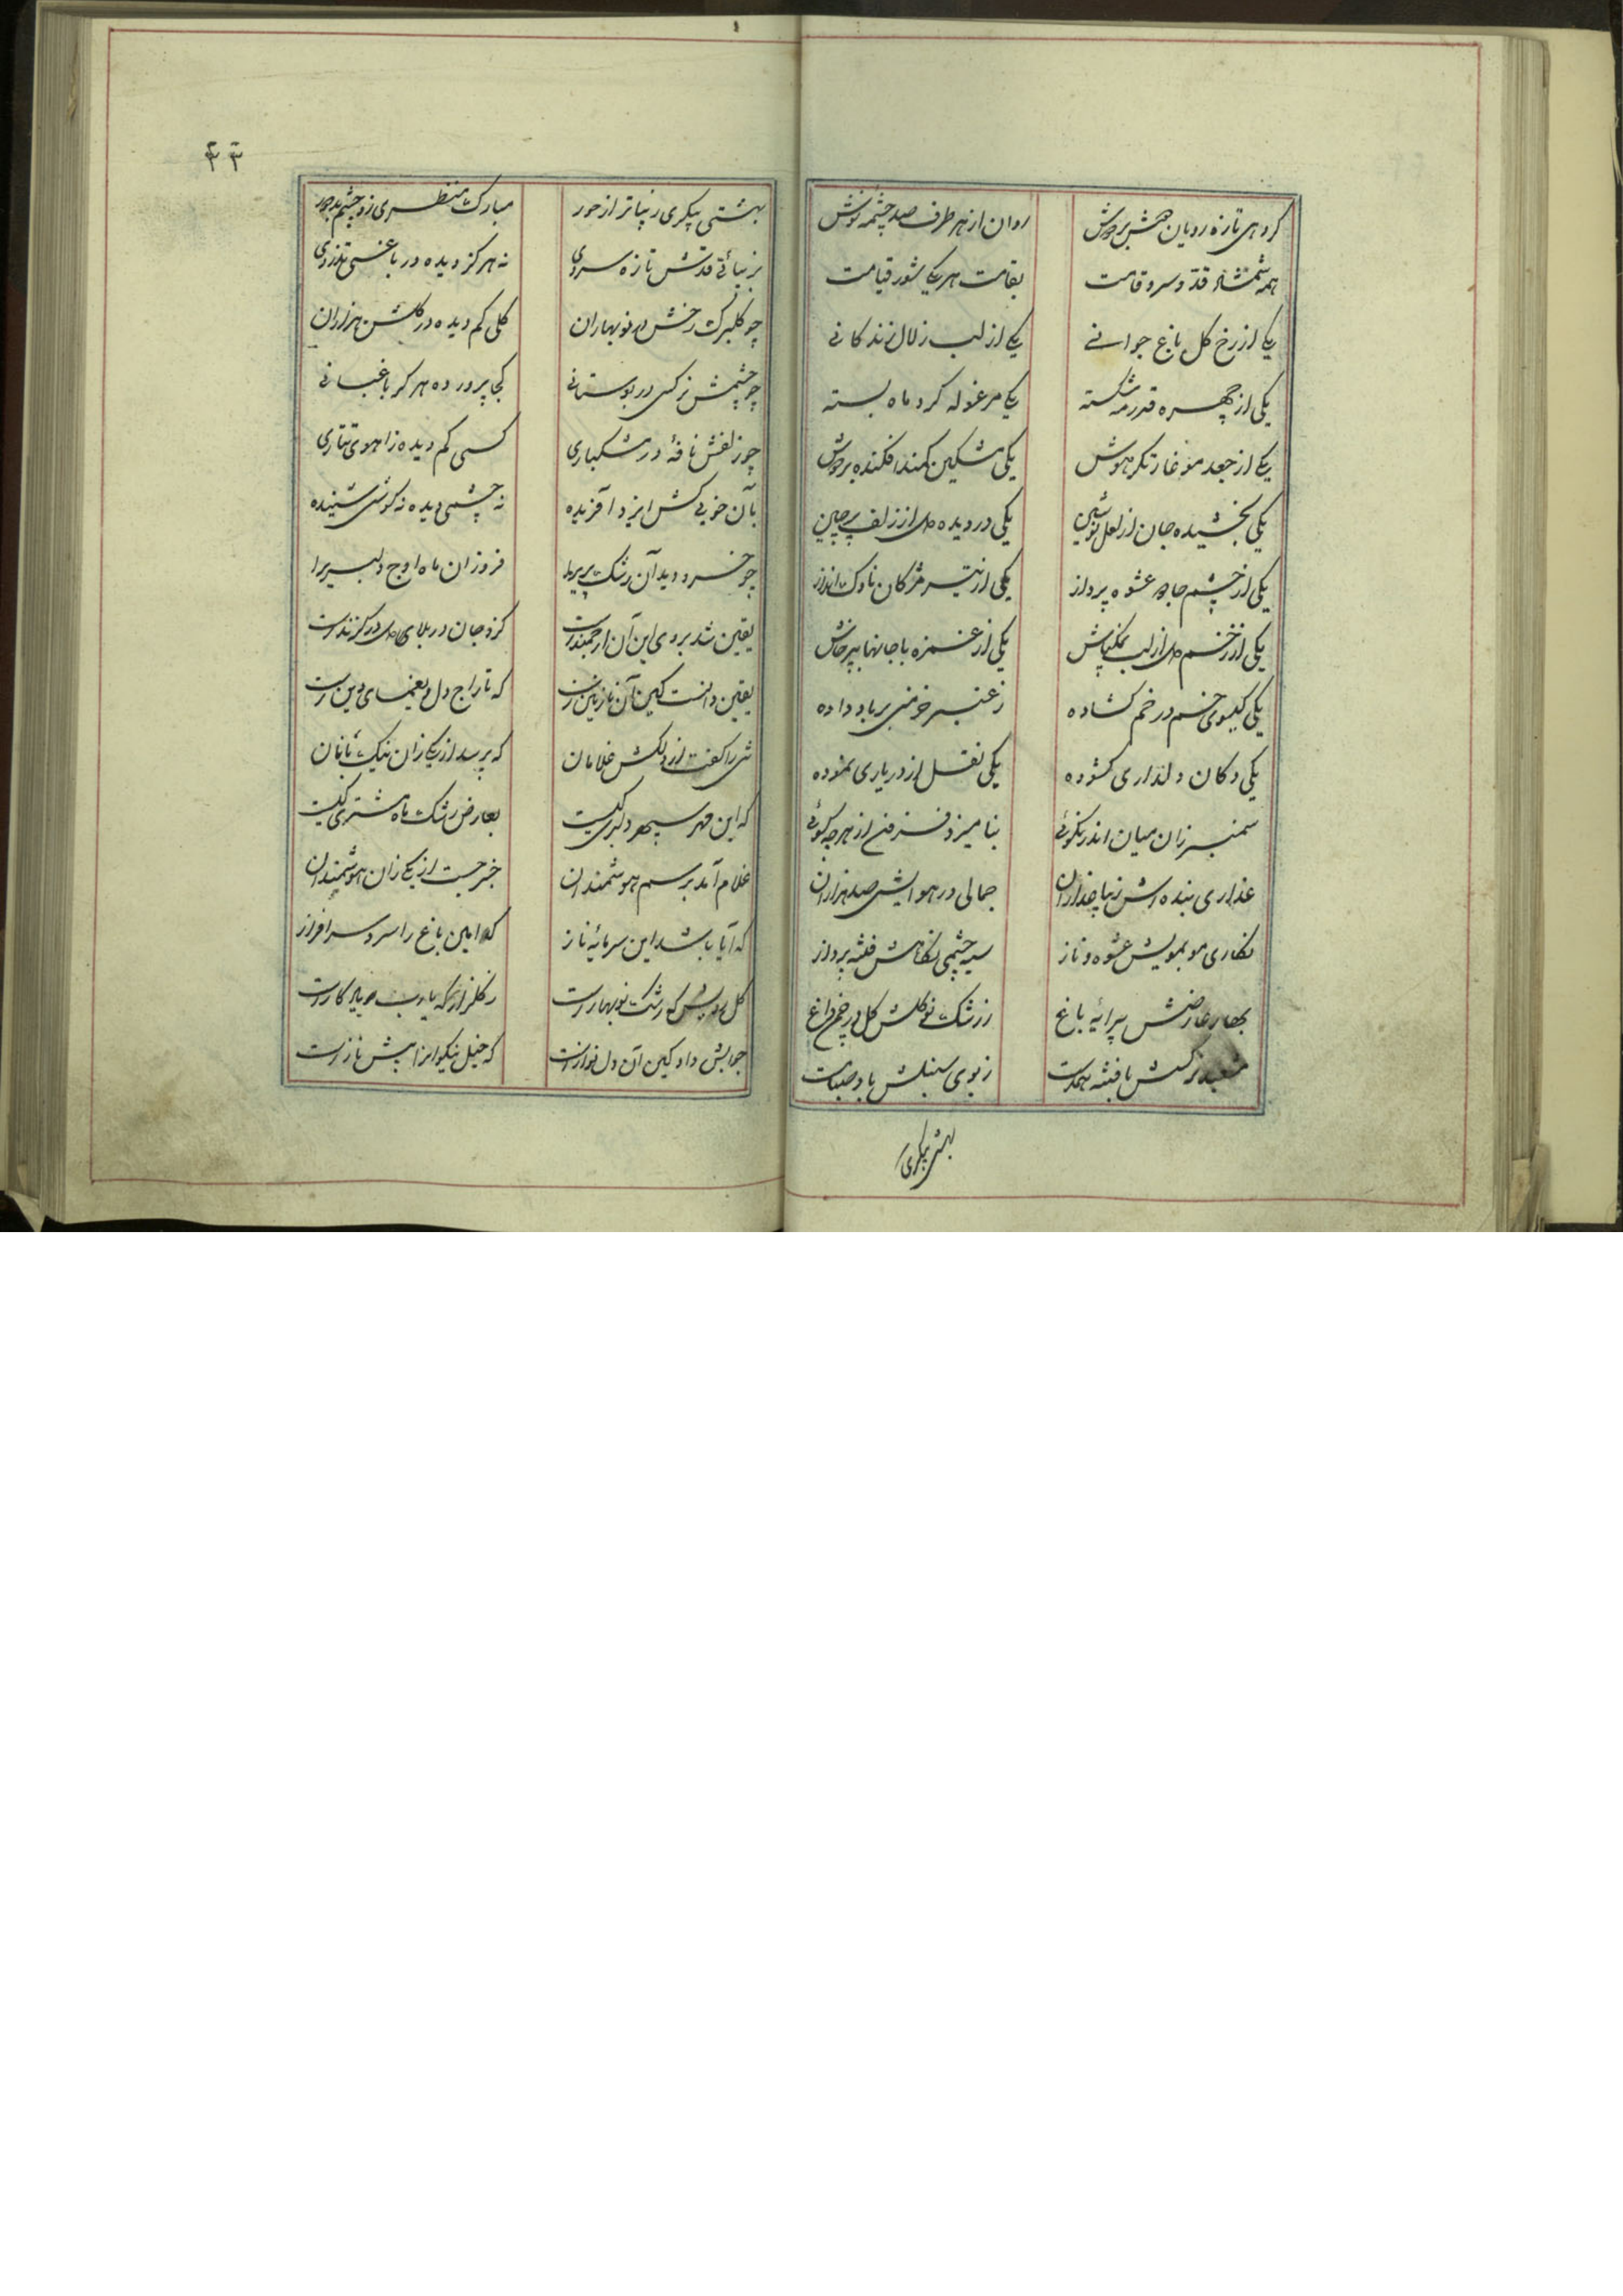 ۴۴
گروهی تازه رویان همبر جوش
روان از هر طرف صد چشمه نوش
همه شمشاد قد و سرو قامت
بقامت هر یکی شور قیامت
یکی از رخ گل باغ جوانی
یکی از لب زلال زندگانی
یکی از چهره قدر مه شکسته
یکی مرغوله گرد ماه بسته
یکی از جعد مو غارتگر هوش
یکی مشکین کمند افکنده بر دوش
یکی بخشیده جان از لعل نوشین
یکی دزدیده دل از زلف پرچین
یکی از چشم جادو عشوه پرداز
یکی از تیر مژگان ناوک انداز
یکی از زخم دل از لب نمکپاش
یکی از غمزه با جانها بپرخاش
یکی گیسوی خم در خم گشاده
ز عنبر خرمنی بر باد داده
یکی دکان دلداری گشوده
یکی نقل از در یاری نموده
سمنبر زان میان اندر نکوئی
بنامیزد فزون از هرچه گوئی
عذاری بنده‌اش زیبا عذاران
جمالی در هوایش صد هزاران
نگاری مو بمویش عشوه و ناز
سیه چشمی نگاهش فتنه پرداز
بهار عارضش پیرایه باغ
ز رشک نوگلش گل در چمن داغ
نرگسش با فتنه همدست
ز بوی سنبلش باد صبا مست
بهشتی پیکری
بهشتی پیکری زیباتر از حور
مبارک منظری زو چشم بد دور
بزیبائی قدش تازه سروی
نه هرگز دیده در باغی تذروی
چو گلبرگ رخش در نوبهاران
گلی کم دیده در گلشن هزاران
چو چشمش نرگسی در بوستانی
کجا پرورده هرگز باغبانی
چو زلفش نافهٔ در مشکباری
کسی کم دیده ز آهوی تتاری
بآن خوبی کش ایزد آفریده
نه چشمی دیده نه گوشی شنیده
چو خسرو دید آن رشک پری را
فروزان ماه اوج دلبری را
یقین شد بروی این آن ارجمندست
کزو جان در بلای دل در گزندست
یقین دانست کین آن نازنین است
که تاراج دل و یغمای دین است
شی را گفت از دلکش غلامان
که پرسد از یکی زان نیک نامان
که این مهر سپهر دلبری کیست
بعارض رشک ماه و مشتری کیست
غلام آمد برسم هوشمندان
خبر جست از یکی زان هوشمندان
که آیا باشد این سرمایهٔ ناز
کدامین باغ را سرو سرافراز
گل که رشک نوبهارست
ز گلزار که یارب
جوابش داد کین آن دل نوازست
که خیل نیکوانرا پیش نازست